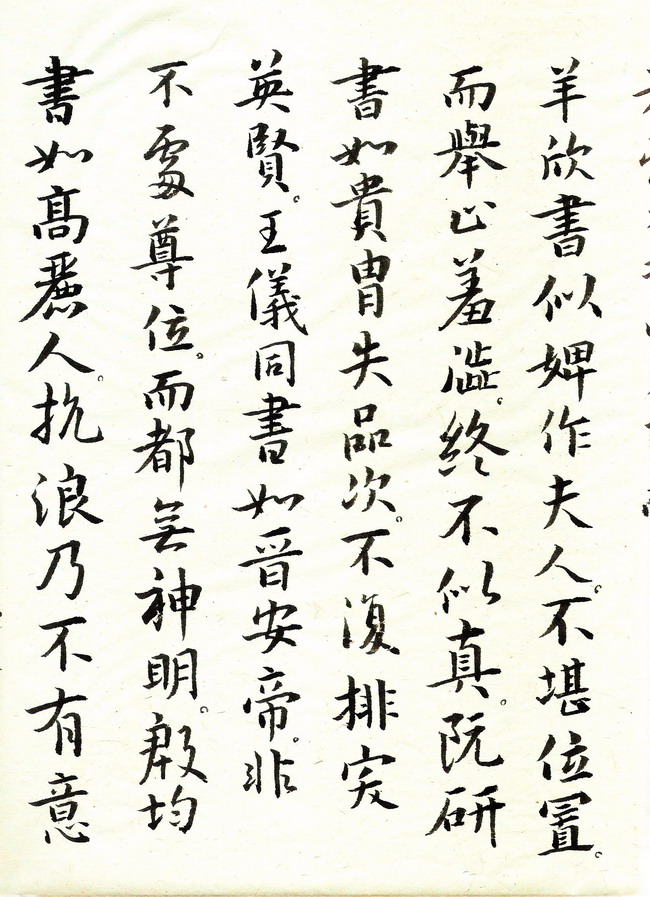 羊欣書似婢作夫人。不堪位置。
而舉止羞澁。終不似真。阮研
書如貴胄失品次。不復排突
英賢。王儀同書如晉安帝。非
不處尊位。而都無神明。殷均
書如高麗人。抗浪乃不有意